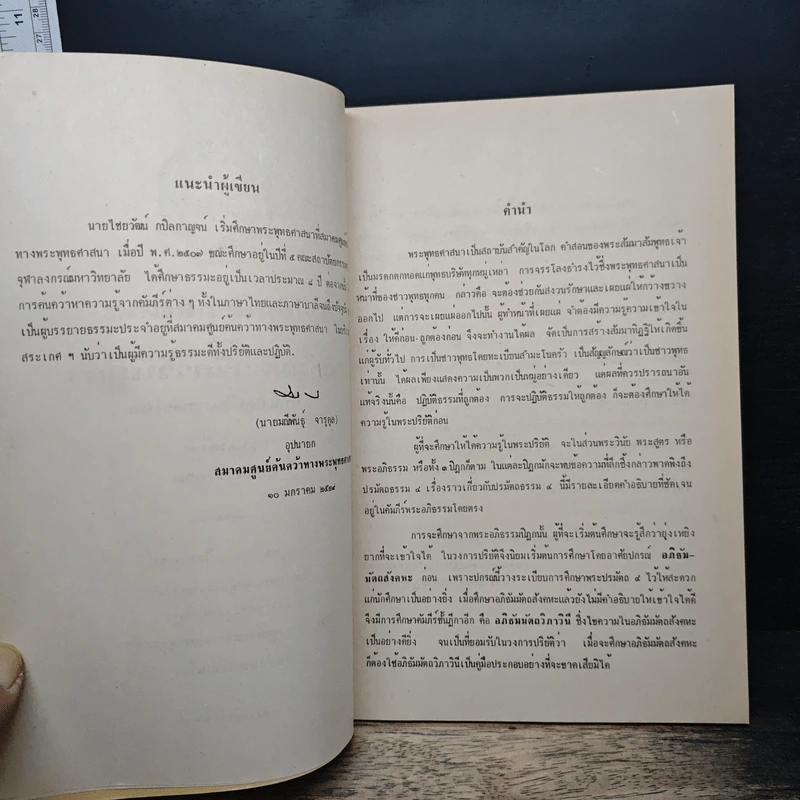 11
28
27
แนะนำผู้เขียน
นายไชยวัฒน์ กปิลกาญจน์ เริ่มศึกษาพระพุทธศาสนาที่สมาคมศูนย์ค้น
ทางพระพุทธศาสนา เมื่อปี พ.ศ.๒๕๐๗ ขณะศึกษาอยู่ในปีที่ ๕ คณะสถาปัตยกรรม
จุฬาลงกรณ์มหาวิทยาลัย ได้ศึกษาธรรมะอยู่เป็นเวลาประมาณ ๘ ปี ต่อจากนั้น
การค้นคว้าหาความรู้จากคัมภีร์ต่าง ๆ ทั้งในภาษาไทยและภาษาบาลีจนถึงปัจจุบัน
เป็นผู้บรรยายธรรมะประจำอยู่ที่สมาคมศูนย์ค้นคว้าทางพระพุทธศาสนา
สระเกศ ฯ นับว่าเป็นผู้มีความรู้ธรรมะดีทั้งปริยัติและปฏิบัติ.
(นายมณีพันธุ์ จารุดุล)
อุปนายก
สมาคมศูนย์ค้นคว้าทางพระพุทธศาส
๑๐ มกราคม ๒๕๑๙
คำนำ
พระพุทธศาสนาเป็นสถาบันสำคัญในโลก คำสอนของพระสัมมาสัมพุทธเจ้า
เป็นมรดกตกทอดแก่พุทธบริษัททุกหมู่เหล่า การจรรโลงธำรงไว้ซึ่งพระพุทธศาสนาเป็น
หน้าที่ของชาวพุทธทุกคน กล่าวคือ จะต้องช่วยกันสงวนรักษาและเผยแผ่ให้กว้างขวาง
ออกไป แต่การจะเผยแผ่ออกไปนั้น ผู้ทำหน้าที่เผยแผ่ จำต้องมีความรู้ความเข้าใจใน
เรื่อง ให้ดีก่อน ถูกต้องก่อน จึงจะทำงานได้ผล จัดเป็นการสร้างสัมมาทิฏฐิให้เกิดขึ้น
แก่ผู้รับทั่วไป การเป็นชาวพุทธโดยทะเบียนสำมะโนครัว เป็นสัญญลักษณ์ว่าเป็นชาวพุทธ
เท่านั้น ได้ผลเพียงแสดงความเป็นพวกเป็นหมู่อย่างเดียว แต่ผลที่ควรปรารถนาอัน
แท้จริงนั้นคือ ปฏิบัติธรรมที่ถูกต้อง การจะปฏิบัติธรรมให้ถูกต้อง ก็จะต้องศึกษาให้ได้
ความรู้ในพระปริยัติก่อน
ผู้ที่จะศึกษาให้ได้ความรู้ในพระปริยัติ จะในส่วนพระวินัย พระสูตร หรือ
พระอภิธรรม หรือทั้ง ๓ ปิฎกก็ตาม ในแต่ละปิฎกมักจะพบข้อความที่ลึกซึ้งกล่าวพาดพิงถึง
ปรมัตถธรรม ๔ เรื่องราวเกี่ยวกับปรมัตถธรรม ๔ นี้มีรายละเอียดคำอธิบายที่ชัดเจน
อยู่ในคัมภีร์พระอภิธรรมโดยตรง
การจะศึกษาจากพระอภิธรรมปิฎกนั้น ผู้ที่จะเริ่มต้นศึกษาจะรู้สึกว่ายุ่งเหยิง
ยากที่จะเข้าใจได้ ในวงการปริยัติจึงนิยมเริ่มต้นการศึกษาโดยอาศัยปกรณ์ อภิธัมมั-
มัตถสังคหะ ก่อน เพราะปกรณ์นี้วางระเบียบการศึกษาพระปรมัตถ ๔ ไว้ให้สะดวก
แก่นักศึกษาเป็นอย่างยิ่ง เมื่อศึกษาอภิธัมมัตถสังคหะแล้วยังไม่มีคำอธิบายให้เข้าใจได้ดี
จึงมีการศึกษาคัมภีร์ชั้นฎีกาอีก คือ อภิธัมมัตถวิภาวินี ซึ่งไขความในอภิธัมมัตถสังคหะ
เป็นอย่างดียิ่ง จนเป็นที่ยอมรับในวงการปริยัติว่า เมื่อจะศึกษาอภิธัมมัตถสังคหะ
ก็ต้องใช้อภิธัมมัตถวิภาวินีเป็นคู่มือประกอบอย่างที่จะขาดเสียมิได้